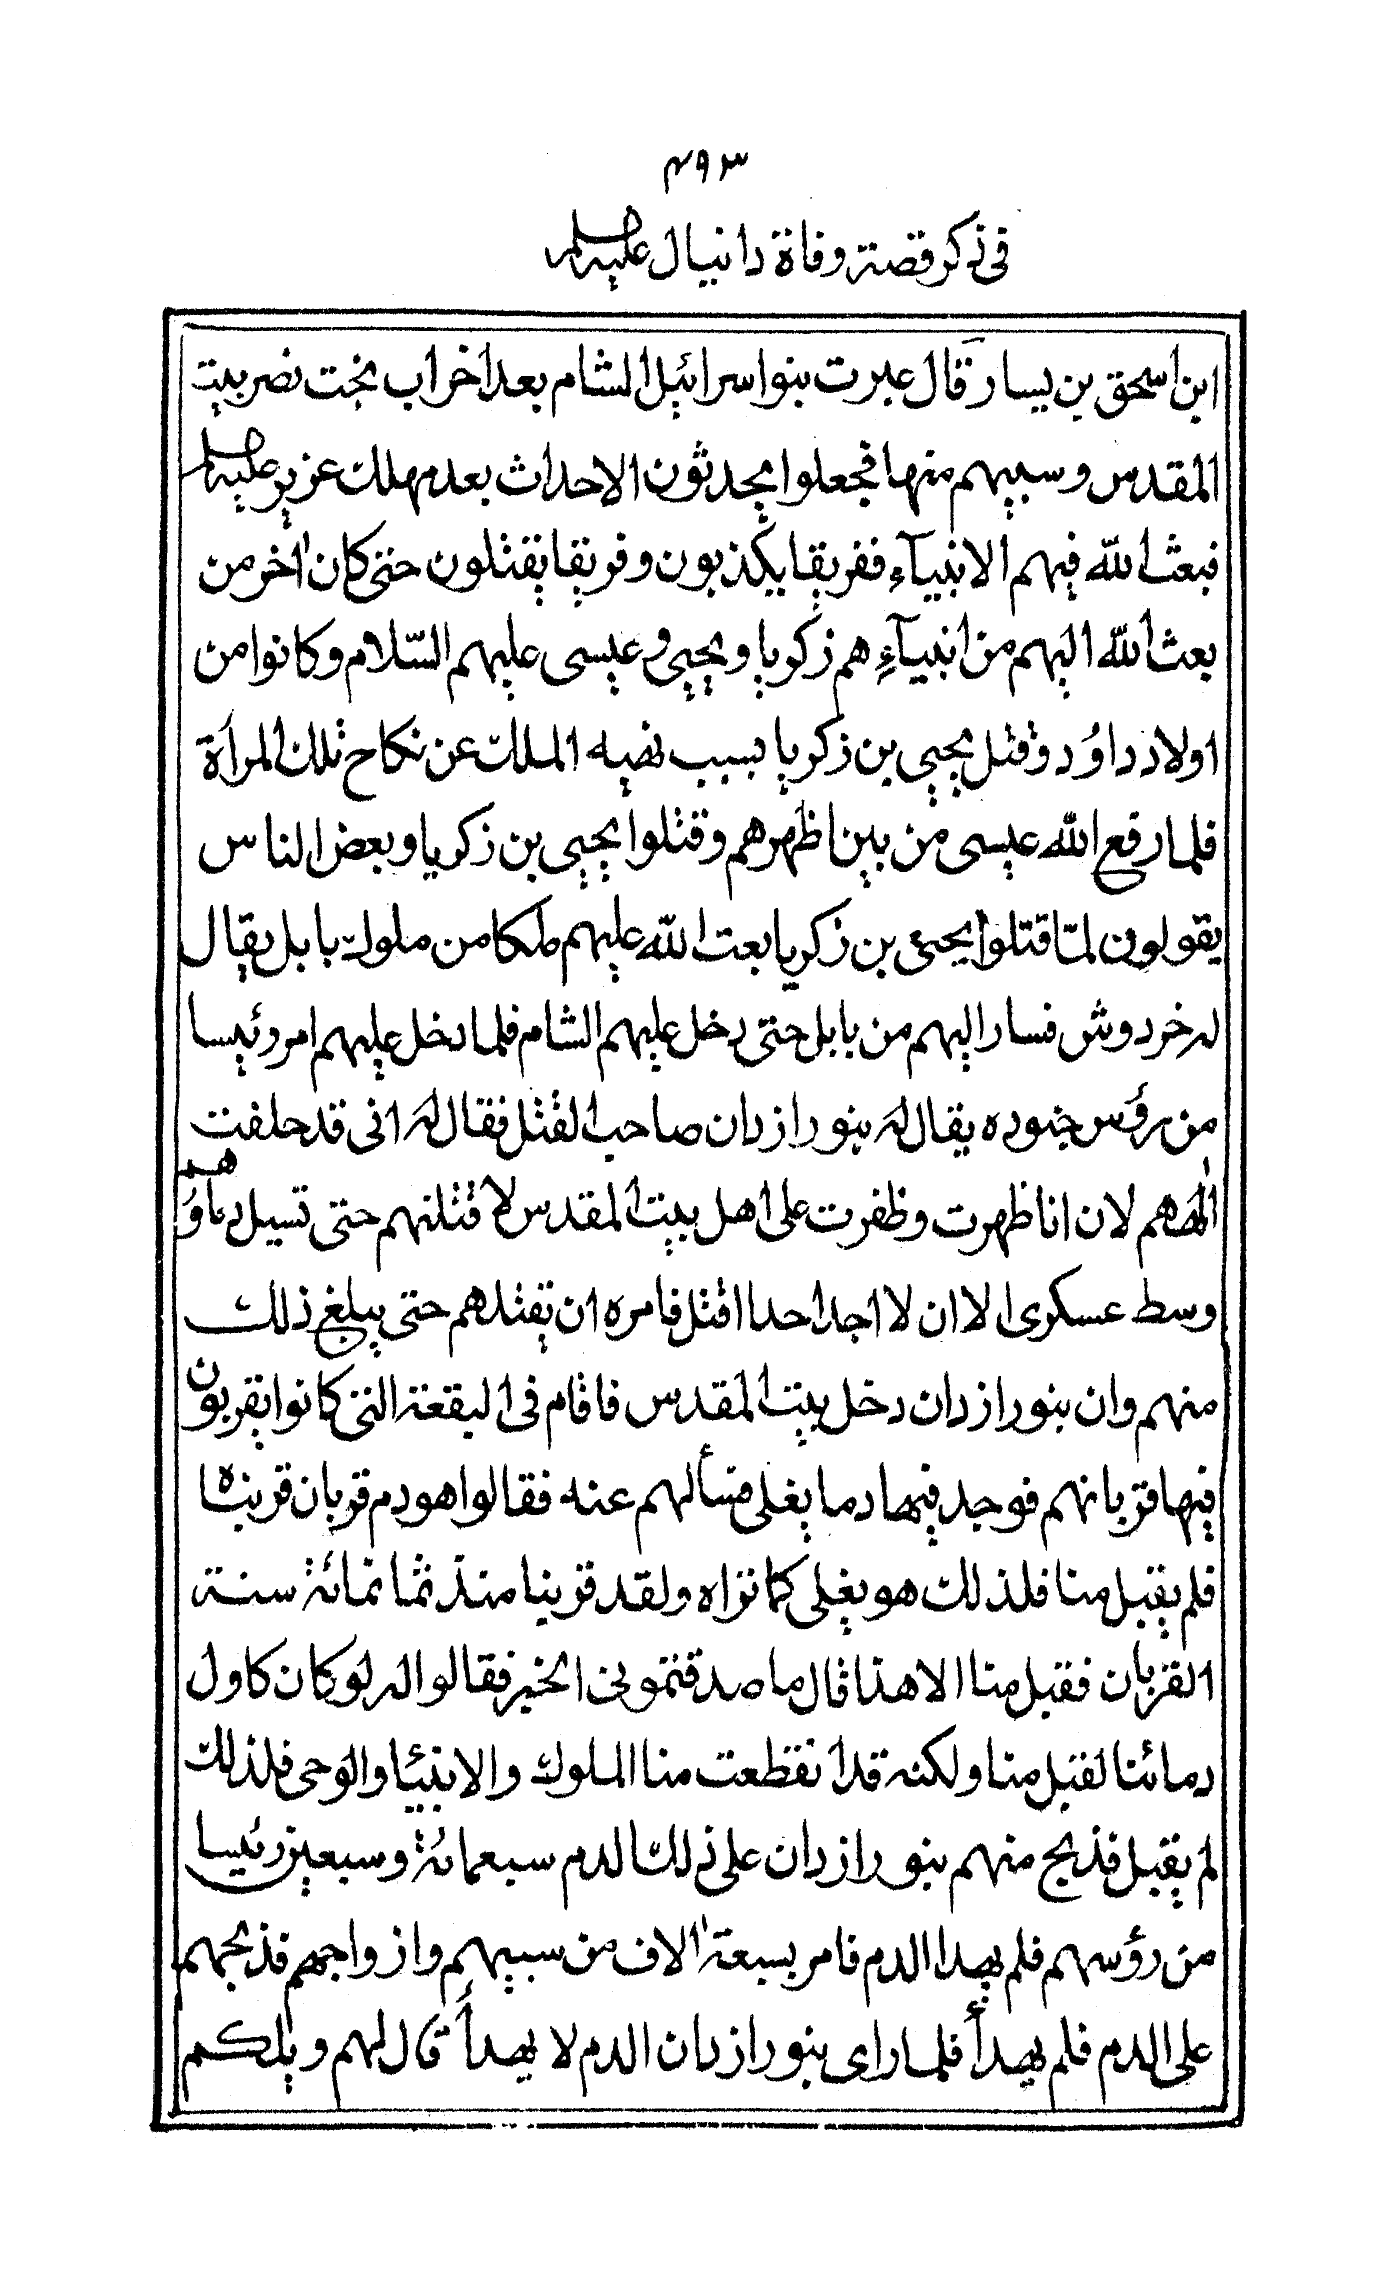 ٤٩٣
في ذكر قصة وفاة دانيال عليه السلام
ابن اسحق بن يسار قال عبرت بنوا سرائيل الشام بعد اخراب بخت نصر بيت
المقدس وسبيهم منها فجعلوا يحدثون الاحداث بعد مهلك عزير عليه السلام
فبعث الله فيهم الانبيآء ففريقا يكذبون وفريقا يقتلون حتى كان اٰخر من
بعث الله اليهم من انبيآءِ هم زكريا ويحيى وعيسى عليهم السّلام وكانوا من
اولاد داوُد وقتل يحيى بن زكريا بسبب نهيه الملك عن نكاح تلك المرأة
فلما رفع الله عيسى من بين اظهرهم وقتلوا يحيى بن زكريا وبعض الناس
يقولون لمّا قتلوا يحيى بن زكريا بعث الله عليهم ملكا من ملوك بابل يقال
له خردوش فسار اليهم من بابل حتى دخل عليهم الشام فلما دخل عليهم امر رئيسا
من رؤس جنوده يقال له بنورازدان صاحب القتل فقال له انى قد حلفت
الٰههم لان انا ظهرت وظفرت على اهل بيت المقدس لأقتلنهم حتى تسيل دماؤهم
وسط عسكرى الا ان لا اجد احدا اقتل فامره ان يقتلهم حتى يبلغ ذلك
منهم وان بنورازدان دخل بيت المقدس فاقام فى البقعة التى كانوا يقربون
فيها قربانهم فوجد فيها دما يغلى فسألهم عنه فقالوا هو دم قربان قربناه
فلم يقبل منا فلذلك هو يغلى كما تراه ولقد قربنا منذ ثمانمائة سنة
القربان فقبل منا الا هذا قال ما صدقتمونى الخبر فقالوا له لو كان كاول
دمائنا لقبل منا ولكنه قد انقطعت منا الملوك والانبياء والوحى فلذلك
لم يقبل فذبح منهم بنورازدان على ذلك الدم سبعمائة وسبعين رئيسا
من رؤسهم فلم يهدا الدم فامر بسبعة اٰلاف من سبيهم وازواجهم فذبحهم
على الدم فلم يهدأ فلما راى بنورازدان الدم لا يهدأ قال لهم ويلكم